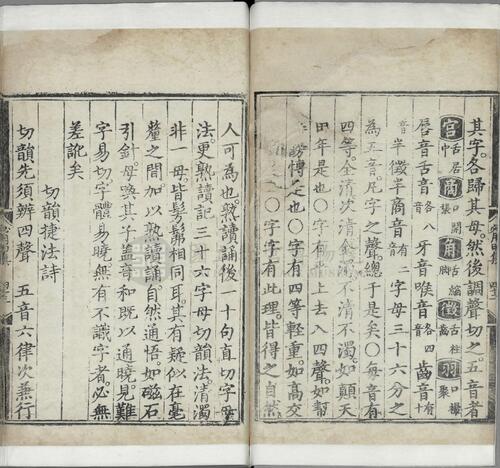 其字各歸其母然後調聲切之五音者
宮舌居中商口開角舌縮脚徵舌柱齒羽口撮聚
唇音舌音各八牙音喉音各四齒音有十
音半徵半商音有二字母三十六分之
為五音凡字之聲總于是矣〇每音有
四等全清次清全濁不清不濁如顛天
田年是也〇字有平上去入四聲如幫
謗博是也〇字有四等輕重如高交
〇字字有此理皆得之自然
人可為也熟讀誦後十句直切字母
法更熟讀記三十六字母切韻法清濁
非一母皆髣髴相同耳其有疑似在毫
釐之間加以熟讀誦自然通悟如磁石
引針母喚其子盖音和既以通曉見難
字易切字體易曉無有不識字者必無
差訛矣
切韻捷法詩
切韻先須辨四聲 五音六律次兼行